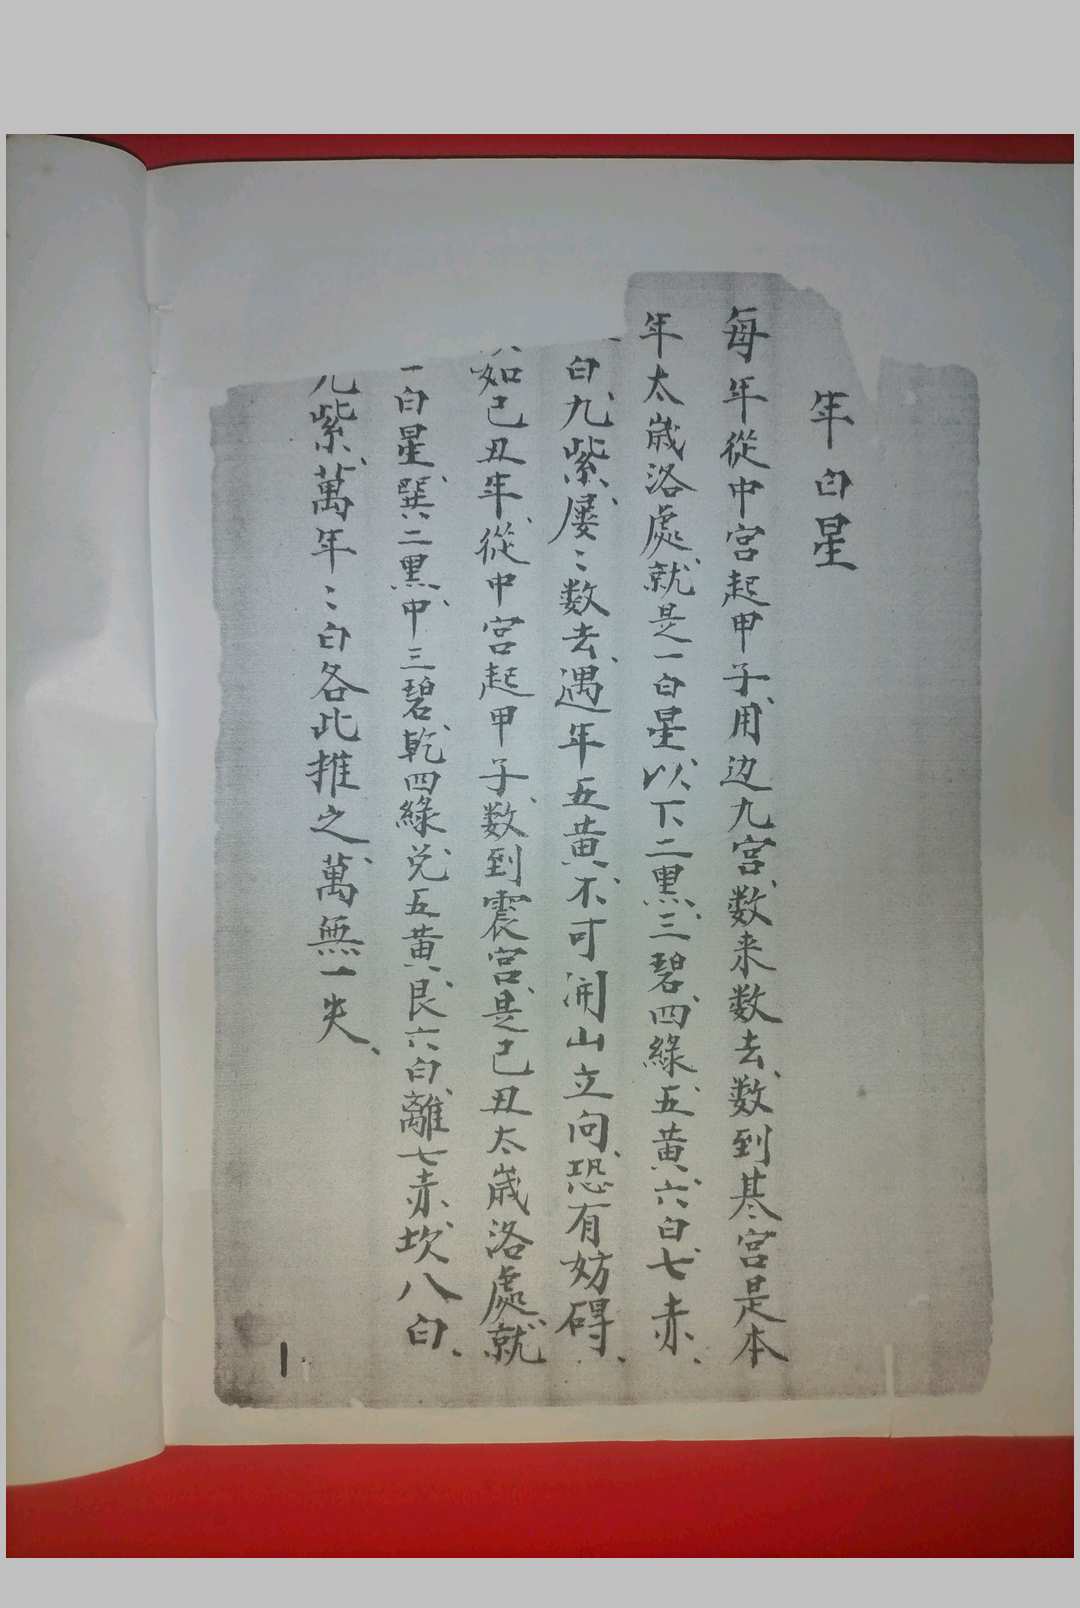 年白星
每年從中宮起甲子、用边九宮、数来数去、数到某宮是本
年太歲洛處、就是一白星、以下二黑、三碧、四綠、五黃、六白、七赤、
白、九紫、屢〻数去、遇年五黃、不可開山立向、恐有妨碍、
如己丑年、從中宮起甲子、数到震宮、是己丑太歲洛處、就
一白星、巽二黑、中三碧、乾四綠、兑五黃、艮六白、離七赤、坎八白、
九紫、萬年〻白各此推之、萬無一失、